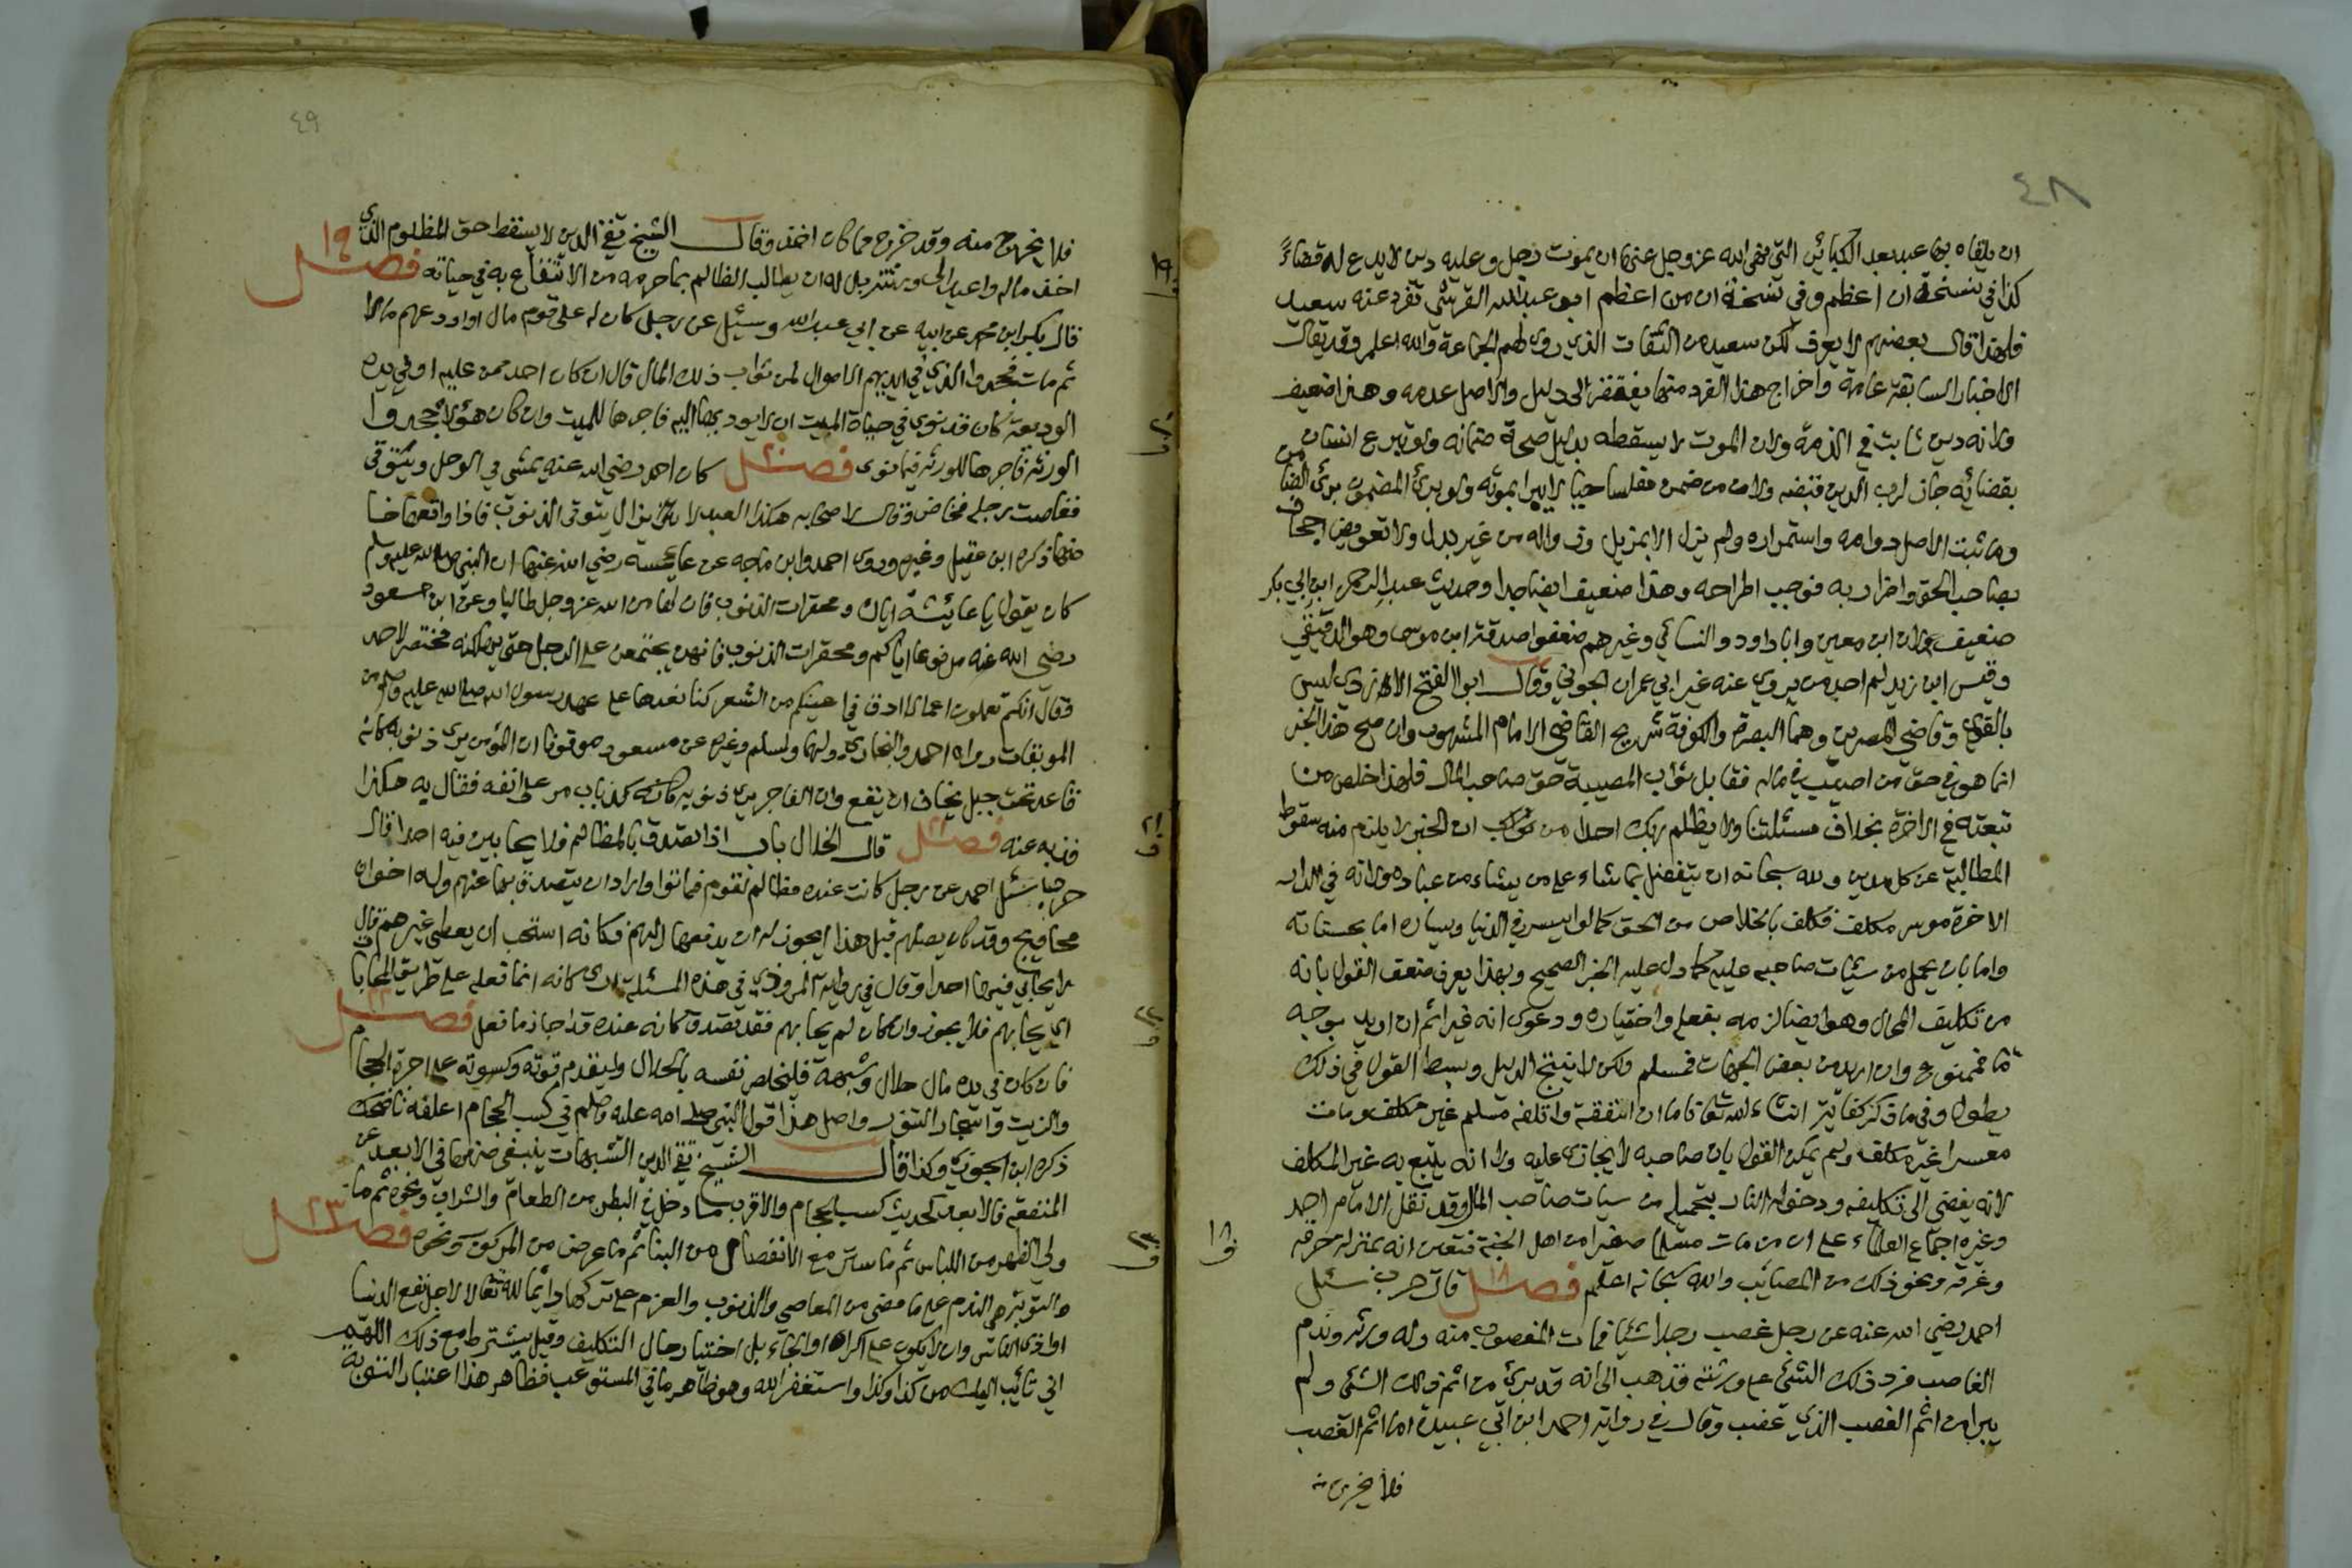 ٤٨
ان يلقاه بها عبد بعد الكبائر التي نهى الله عز وجل عنها ان يموت رجل وعليه دين لا يدع له قضاءً
كذا في نسخة ان اعظم وفي نسخة ان من اعظم ابو عبد الله القرشي تفرد عنه سعيد
فلهذا قال بعضهم لا يعرف لكن سعيد من الثقات الذين روى لهم الجماعة والله اعلم وقد يقال
الاخبار السابقة عامة واخراج هذا الفرد منها يفتقر الى دليل والاصل عدمه وهذا ضعيف
ولانه دين ثابت في الذمة ولان الموت لا يسقطه بدليل صحة ضمانه ولو تبرع انسان
بقضائه جاز لرب الدين قبضه ولان من ضمن مفلسا حيا لا يبرا بموته ولو برئ المضمون برئ الضامن
وما ثبت الاصل دوامه واستمراره ولم يزل الا بمزيل وزواله من غير بدل ولا تعويض اجحاف
بصاحب الحق واضرار به فوجب اطراحه وهذا ضعيف ايضا جدا وحديث عبد الرحمن ابن ابي بكر
ضعيف ولان ابن معين وابا داود والنسائي وغيرهم ضعفوا صدقة ابن موسى وهو الدقيقي
وقيس ابن زيد لم احد من يروي عنه غير ابي عمران الجوني وقال ابو الفتح الازدي ليس
بالقوي وقاضي المصرين وهما البصرة والكوفة شريح القاضي الامام المشهور وان صح هذا الخبر
انما هو في حق من اصيب في ماله فقابل ثواب المصيبة حق صاحب المال فلهذا خلص من
تبعته في الاخرة بخلاف مسئلتنا ولا يظلم ربك احدا من ان الخبر لا يلزم منه سقوط
المطالبة عن كل مدين ولله سبحانه ان يتفضل بما شاء على من يشاء من عباده ولانه في الدار
الاخرة موسر مكلف فكلف بالخلاص من الحق كما لو ايسر في الدنيا ويساره اما بحسناته
واما بان يحمل من سيئات صاحبه عليه كما دل عليه الخبر الصحيح وبهذا يعرف ضعف القول بانه
من تكليف المحال وهو ايضا لزمه بفعله واختياره ودعوى انه غير اثم ان اريد بوجه
ما فممنوع وان اريد من بعض الجهات فمسلم ولكن لا ينتج الدليل وبسط القول في ذلك
يطول وفي ما ذكر كفاية ان شاء الله تعالى فاما ان انفقه واتلفه مسلم غير مكلف ومات
معسرا غير مكلف ولم يمكن القول بان صاحبه لا يجازى عليه ولا انه يتبع به غير المكلف
لانه يفضي الى تكليفه ودخوله النار بتحميله من سيات صاحب المال وقد نقل الامام احمد
وغيره اجماع العلماء على ان من مات مسلما صغيرا من اهل الجنة فتعين انه بمنزلة حرقه
وغرقه ونحو ذلك من المصائب والله سبحانه اعلم فصل ١٨ قال حرب سئل
احمد رضي الله عنه عن رجل غصب رجلا شيئا فمات المغصوب منه وله ورثة وندم
الغاصب فرد ذلك الشئ على ورثته فذهب الى انه قد برئ من اثم ذلك الشئ ولم
يبرا من اثم الغصب الذي غصب وقال في رواية احمد ابن ابي عبيدة اما اثم الغصب
فلا يخرج منه
١٨
ف
٤٩
فلا يخرج منه وقد خرج مما كان اخذ وقال الشيخ تقي الدين لا يسقط حق المظلوم الذي
اخذ ماله واعيد الى ورثته بل له ان يطالب الظالم بما حرمه من الانتفاع به في حياته فصل ١٩
قال بكر ابن محمد عن ابيه عن ابي عبد الله وسئل عن رجل كان له على قوم مال او اودعهم مالا
ثم مات فجحدوا الذي في ايديهم الاموال لمن ثواب ذلك المال قال ان كان احد ممن عليه او في يده
الوديعة كان قد نوى في حياة الميت ان لا يودي بها اليه فاجرها للميت وان كان هؤلا جحدوا
الورثة فاجرها للورثة فيما نوى فصل ٢٠ كان احمد رضي الله عنه يمشي في الوحل ويتوقى
فغاصت رجله فخاض وقال لاصحابه هكذا العبد لا يزال يتوقى الذنوب فاذا واقعها خا
ضها ذكره ابن عقيل وغيره وروى احمد وابن ماجه عن عايشة رضي الله عنها ان النبي صلى الله عليه وسلم
كان يقول يا عايشة اياك ومحقرات الذنوب فان لها من الله عز وجل طالبا وعن ابن مسعود
رضي الله عنه مرفوعا اياكم ومحقرات الذنوب فانهن يجتمعن على الرجل حتى يهلكنه مختصر لاحمد
وقال انكم تعملون اعمالا ادق في اعينكم من الشعر كنا نعدها على عهد رسول الله صلى الله عليه وسلم من
الموبقات رواه احمد والبخاري ولهما ولمسلم وغيره عن مسعود موقوفا ان المؤمن يرى ذنوبه كانه
قاعد تحت جبل يخاف ان يقع وان الفاجر يرى ذنوبه كانه كذباب مر على انفه فقال به هكذا
فذبه عنه فصل ٢١ قال الخلال باب اذا تصدق بالمظالم فلا يحابين فيه احدا قال
حرب سئل احمد عن رجل كانت عنده مظالم لقوم فماتوا واراد ان يتصدق بها عنهم وله اخوان
محاويج وقد كان يصلهم قبل هذا ايجوز له ان يدفعها اليهم فكانه استحب ان يعطي غيرهم قال
لا يحابي فيها احدا وقال في رواية المروذي في هذه المسئلة ارى كانه انما فعله على طريق المحاباة
اي يحابهم فلا يجوز وان كان لم يحابهم فقد تصدق كانه عنده قد اجاز ما فعل فصل ٢٢
فان كان في يده مال حلال وشبهة فليخلص نفسه بالحلال وليقدم قوته وكسوته على اجرة الحجام
والزيت واسجار التنور واصل هذا قول النبي صلى الله عليه وسلم في كسب الحجام اعلفه ناضحك
ذكره ابن الجوزي وكذا قال الشيخ تقي الدين الشبهات ينبغي صرفها في الابعد عن
المنفعة فالابعد كحديث كسب الحجام والاقرب ما دخل في البطن من الطعام والشراب ونحوه ثم ما
ولي الظهر من اللباس ثم ما ستر مع الانفصال من البنا ثم ما عرض من المركوب ونحوه فصل ٢٣
والتوبة هي الندم على ما مضى من المعاصي والذنوب والعزم على تركها دائما لله تعالى لا لاجل نفع الدنيا
او اذى الناس وان لا يكون على اكراه او الجاء بل اختيار حال التكليف وقيل يشترط مع ذلك اللهم
اني تائب اليك من كذا وكذا واستغفر الله وهو ظاهر ما في المستوعب فظاهر هذا اعتبار التوبة
١٩
ف
٢٠
ف
٢١
ف
٢٢
ف
٢٣
ف